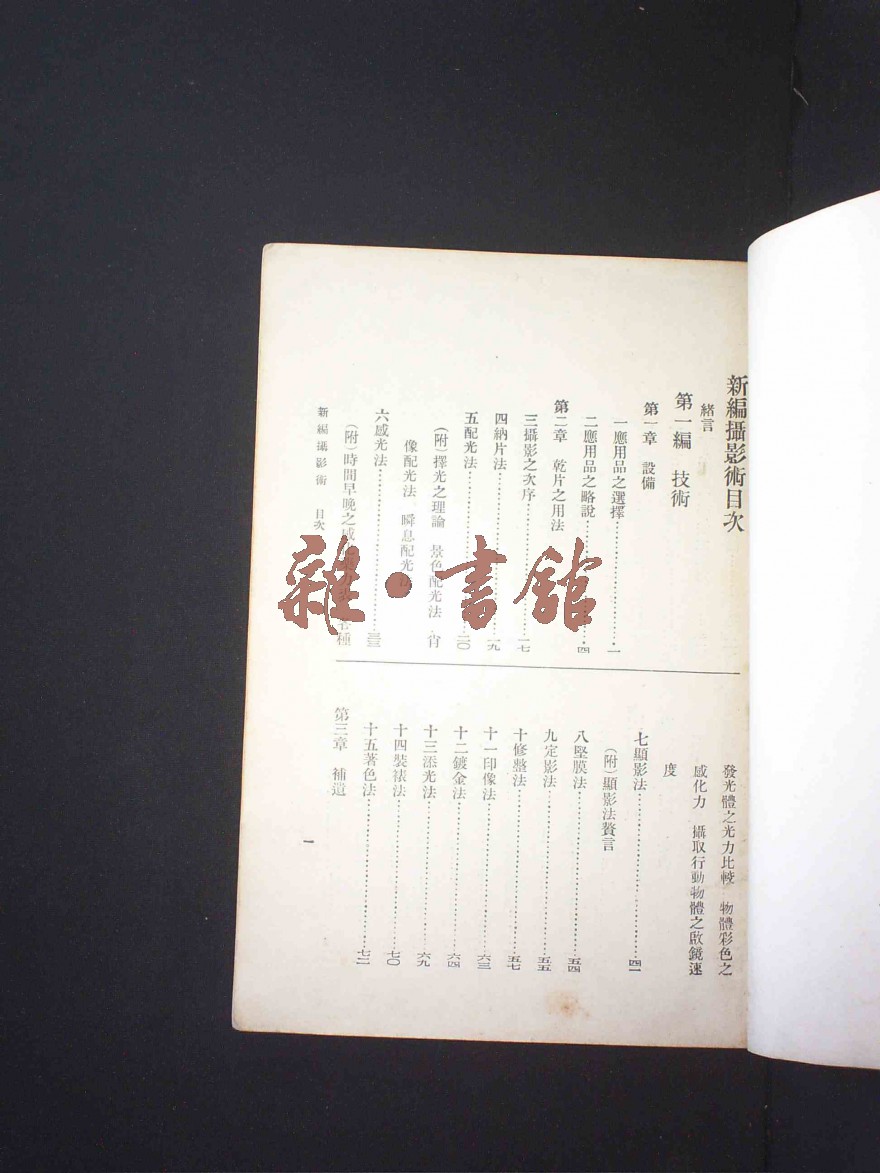 新編攝影術目次
緒言
第一編　技術
第一章　設備
一應用品之選擇…………一
二應用品之略說…………四
第二章　乾片之用法
三攝影之次序…………一七
四納片法…………一九
五配光法…………二〇
（附）擇光之理論　景色配光法　肖
像配光法　瞬息配光
六感光法…………三三
（附）時間早晚之感　各種
發光體之光力比較　物體彩色之
感化力　攝取行動物體之啟鏡速
度
七顯影法…………四一
（附）顯影法贅言
八堅膜法…………五四
九定影法…………五五
十修整法…………五七
十一印像法…………六三
十二鍍金法…………六四
十三添光法…………六九
十四裝裱法…………七〇
十五著色法…………七二
第三章　補遺
新編攝影術　目次
一
雜·書館